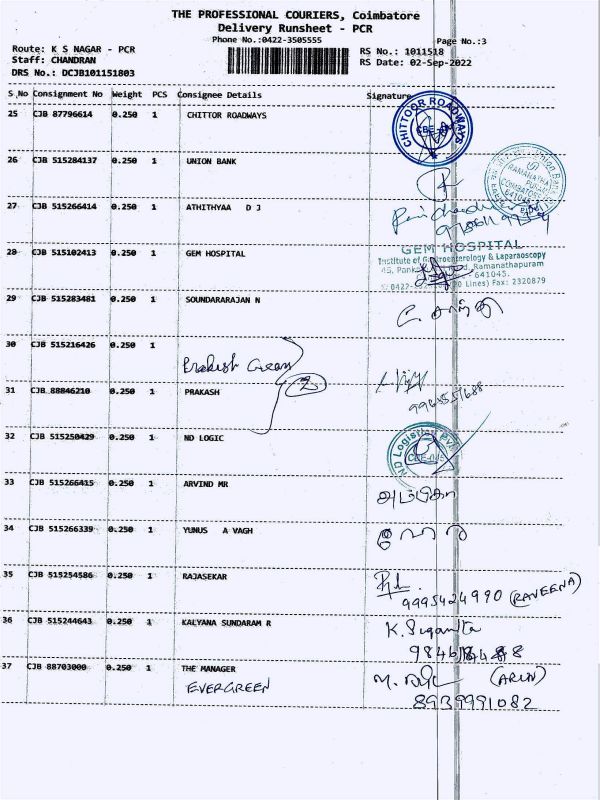 THE PROFESSIONAL COURIERS, Coimbatore
Delivery Runsheet - PCR
Phone No.:0422-3505555
Page No.:3
Route: K S NAGAR - PCR
RS No.: 1011518
Staff: CHANDRAN
RS Date: 02-Sep-2022
DRS No.: DCJB101151803
S No Consignment No Weight PCS Consignee Details Signature
25 CJB 87796614 0.250 1 CHITTOR ROADWAYS
CHITTOOR ROADWAYS
CBE
26 CJB 515284137 0.250 1 UNION BANK
27 CJB 515266414 0.250 1 ATHITHYAA D J
28 CJB 515102413 0.250 1 GEM HOSPITAL
GEM HOSPITAL
Institute of Gastroenterology & Laparaoscopy
45, Ramanathapuram
641045.
Lines) Fax: 2320879
29 CJB 515283481 0.250 1 SOUNDARARAJAN N
30 CJB 515216426 0.250 1
Prakash
2
31 CJB 88846210 0.250 1 PRAKASH
32 CJB 515250429 0.250 1 ND LOGIC
ND Logistics Pvt
33 CJB 515266415 0.250 1 ARVIND MR
34 CJB 515266339 0.250 1 YUNUS A VAGH
35 CJB 515254586 0.250 1 RAJASEKAR
9995424990 (RAVEENA)
36 CJB 515244643 0.250 1 KALYANA SUNDARAM R
37 CJB 88703000 0.250 1 THE MANAGER
EVERGREEN
(ARUN)
8939991082